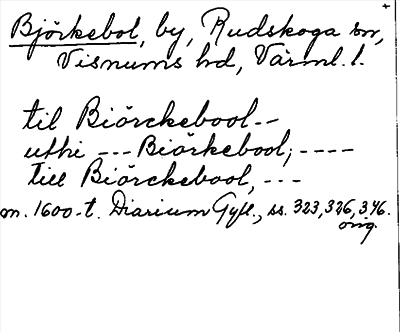 Björkebol, by, Rudskoga sn,
Visnums hd, Värml. l.
til Biörckebool--
uthi --- Biörkebool; ----
till Biörckebool, ---
m. 1600-t. Diarium Gyll., ss. 323, 326, 346.
orig.